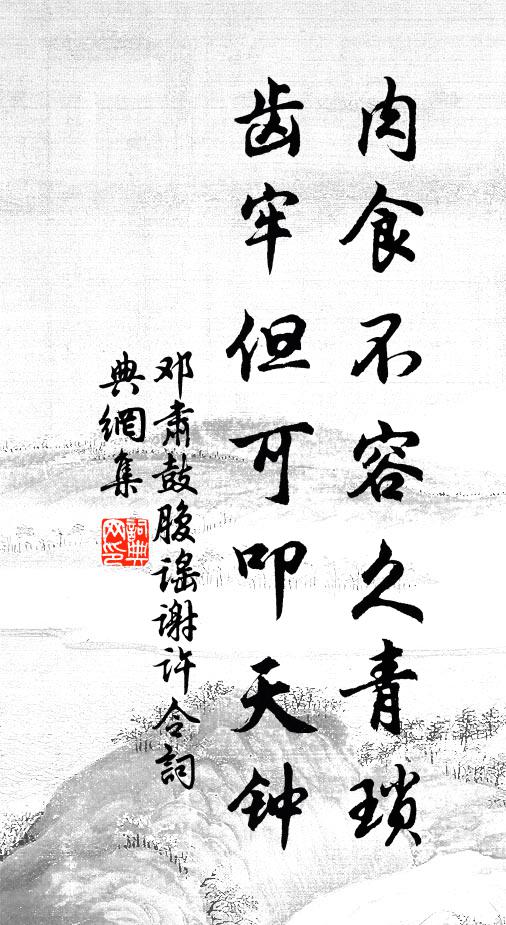 肉食不容久青琐
齿牢但可叩天钟
邓肃鼓腹谣谢许令词
典網集
詞典网印